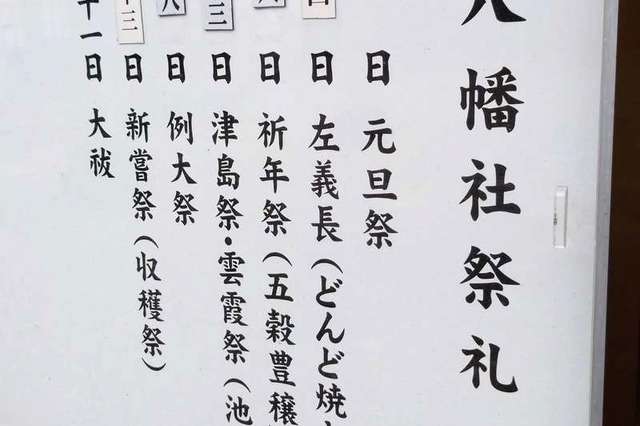 八幡社祭礼
日 元旦祭
日 左義長(どんど焼
日 祈年祭(五穀豊穣
三日 津島祭・雲霞祭(池
八日 例大祭
十三日 新嘗祭(収穫祭)
十一日 大祓